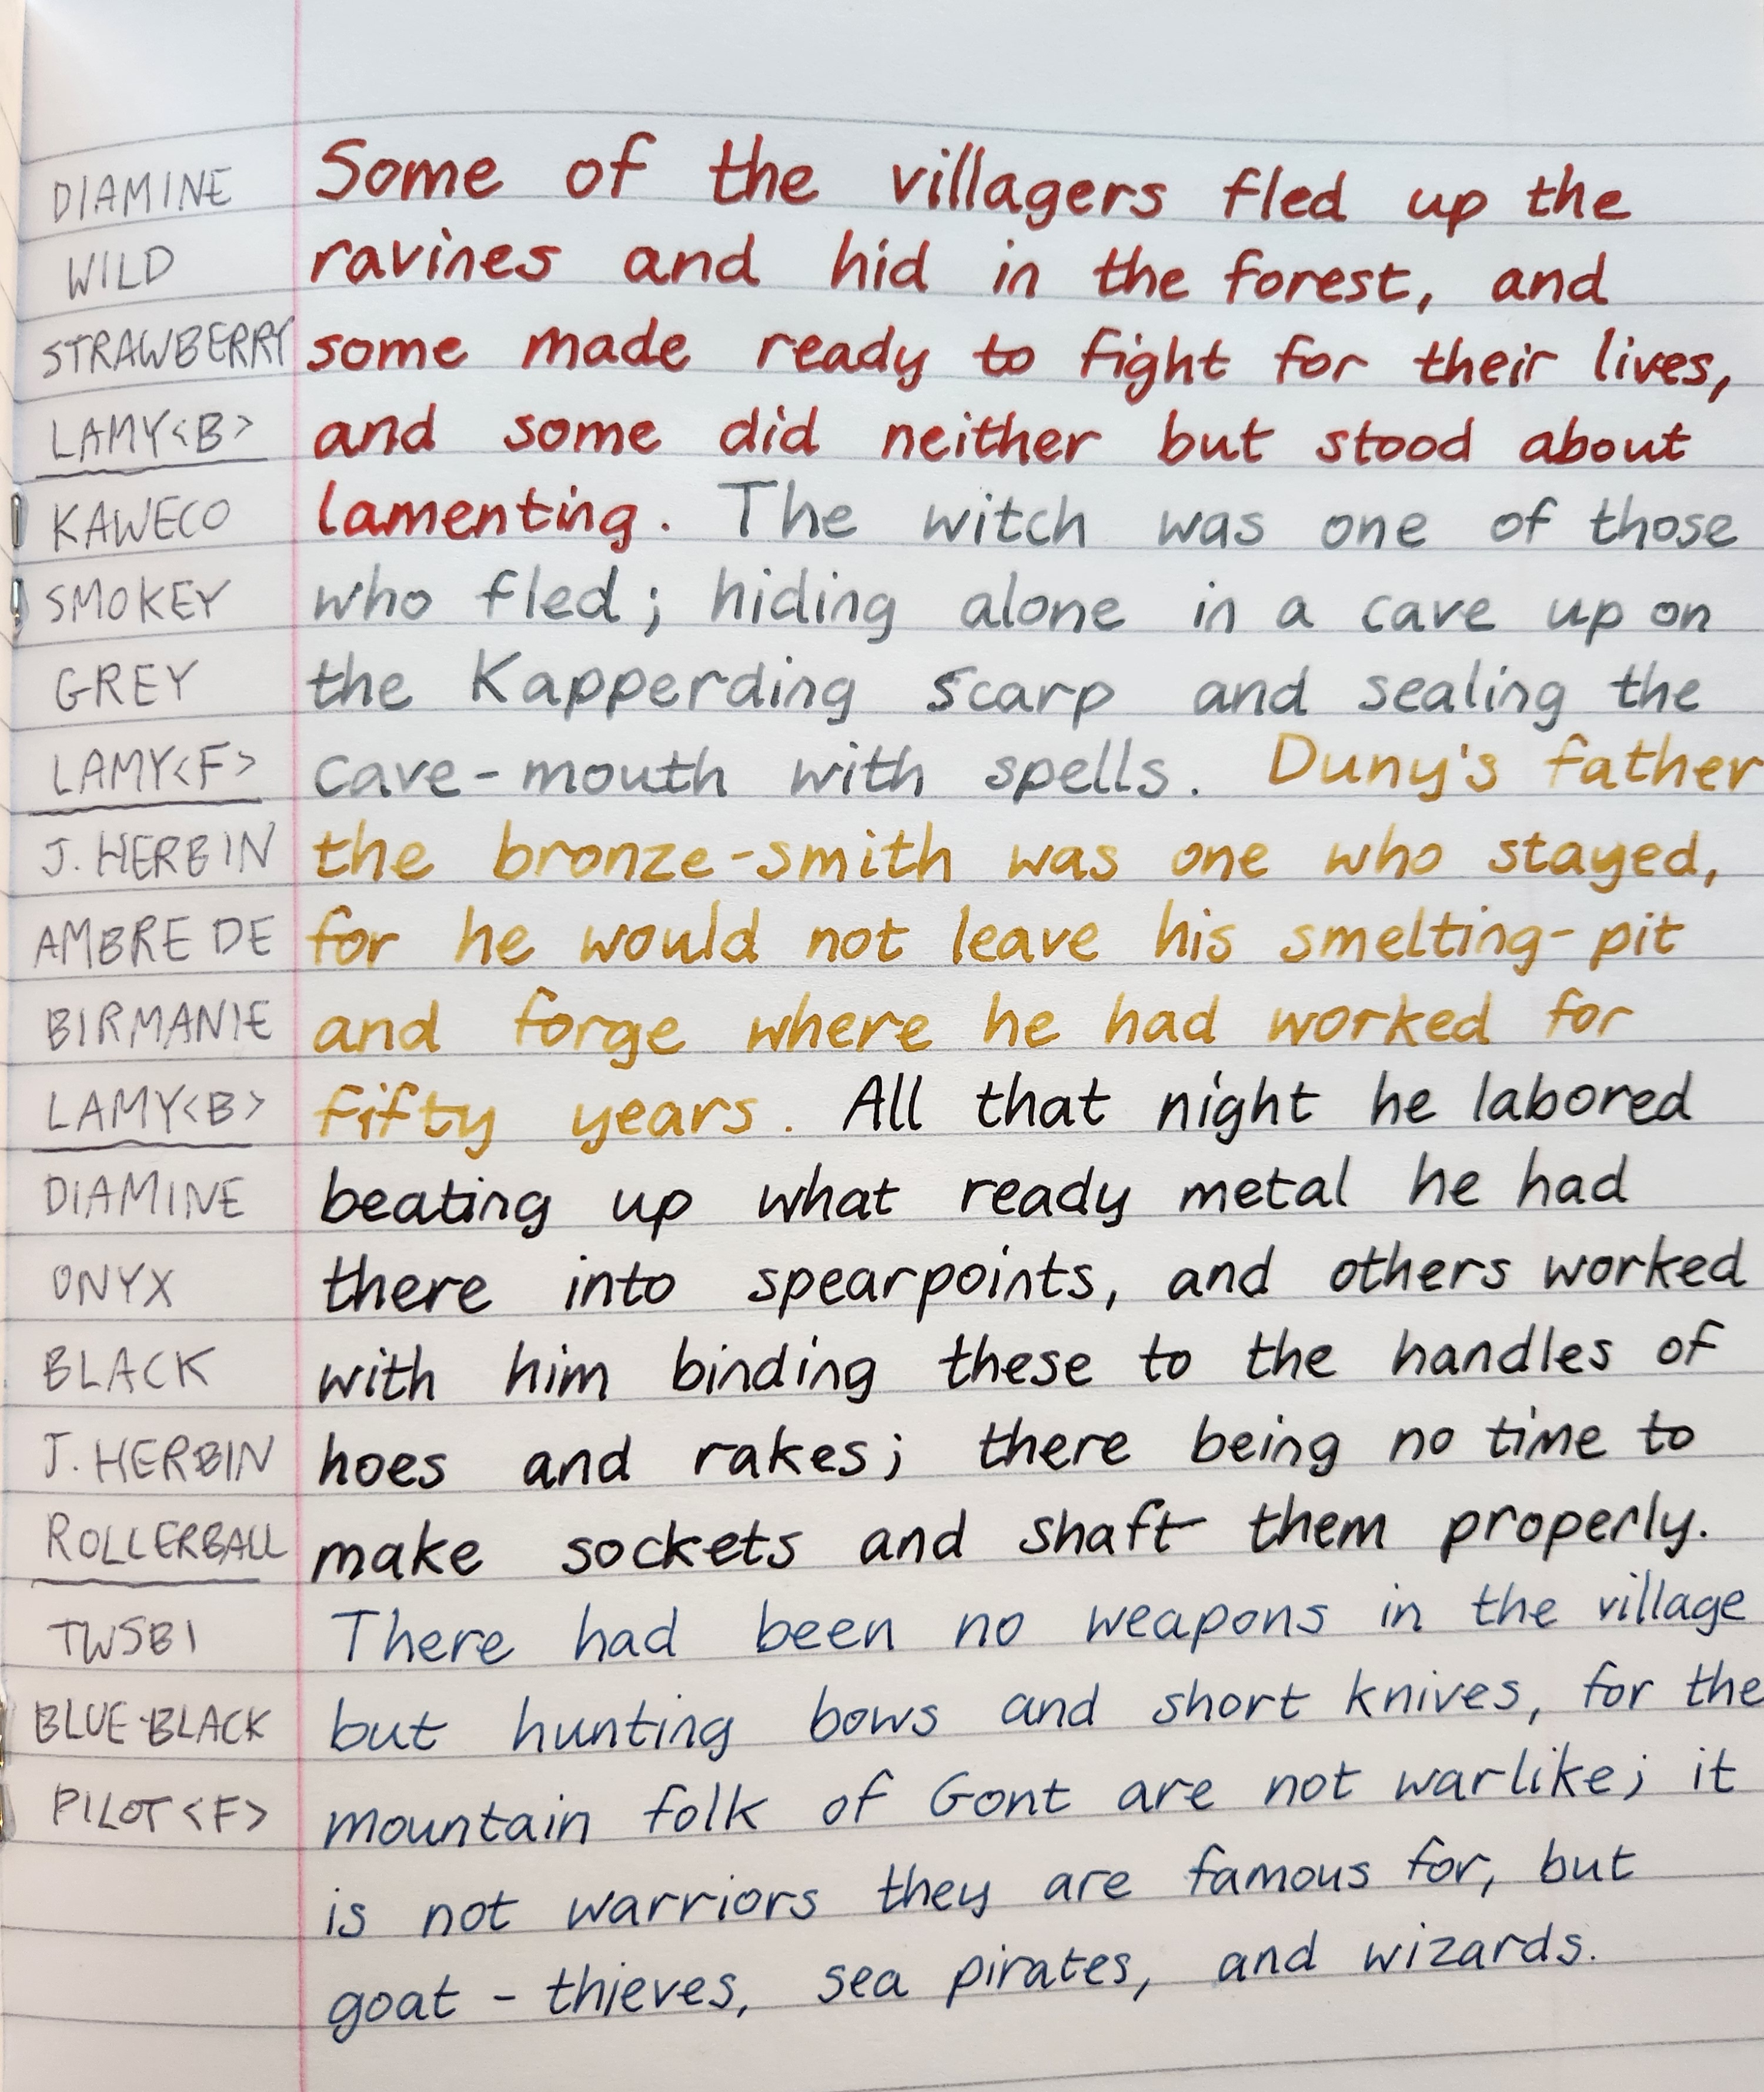 DIAMINE Some of the villagers fled up the
WILD ravines and hid in the forest, and
STRAWBERRY some made ready to fight for their lives,
LAMY<B> and some did neither but stood about
KAWECO lamenting. The witch was one of those
SMOKEY who fled; hiding alone in a cave up on
GREY the Kapperding scarp and sealing the
LAMY<F> cave-mouth with spells. Duny's father
J. HERBIN the bronze-smith was one who stayed,
AMBRE DE for he would not leave his smelting-pit
BIRMANIE and forge where he had worked for
LAMY<B> fifty years. All that night he labored
DIAMINE beating up what ready metal he had
ONYX there into spearpoints, and others worked
BLACK with him binding these to the handles of
J. HERBIN hoes and rakes; there being no time to
ROLLERBALL make sockets and shaft them properly.
TWSBI There had been no weapons in the village
BLUE-BLACK but hunting bows and short knives, for the
PILOT <F> mountain folk of Gont are not warlike; it
is not warriors they are famous for, but
goat-thieves, sea pirates, and wizards.